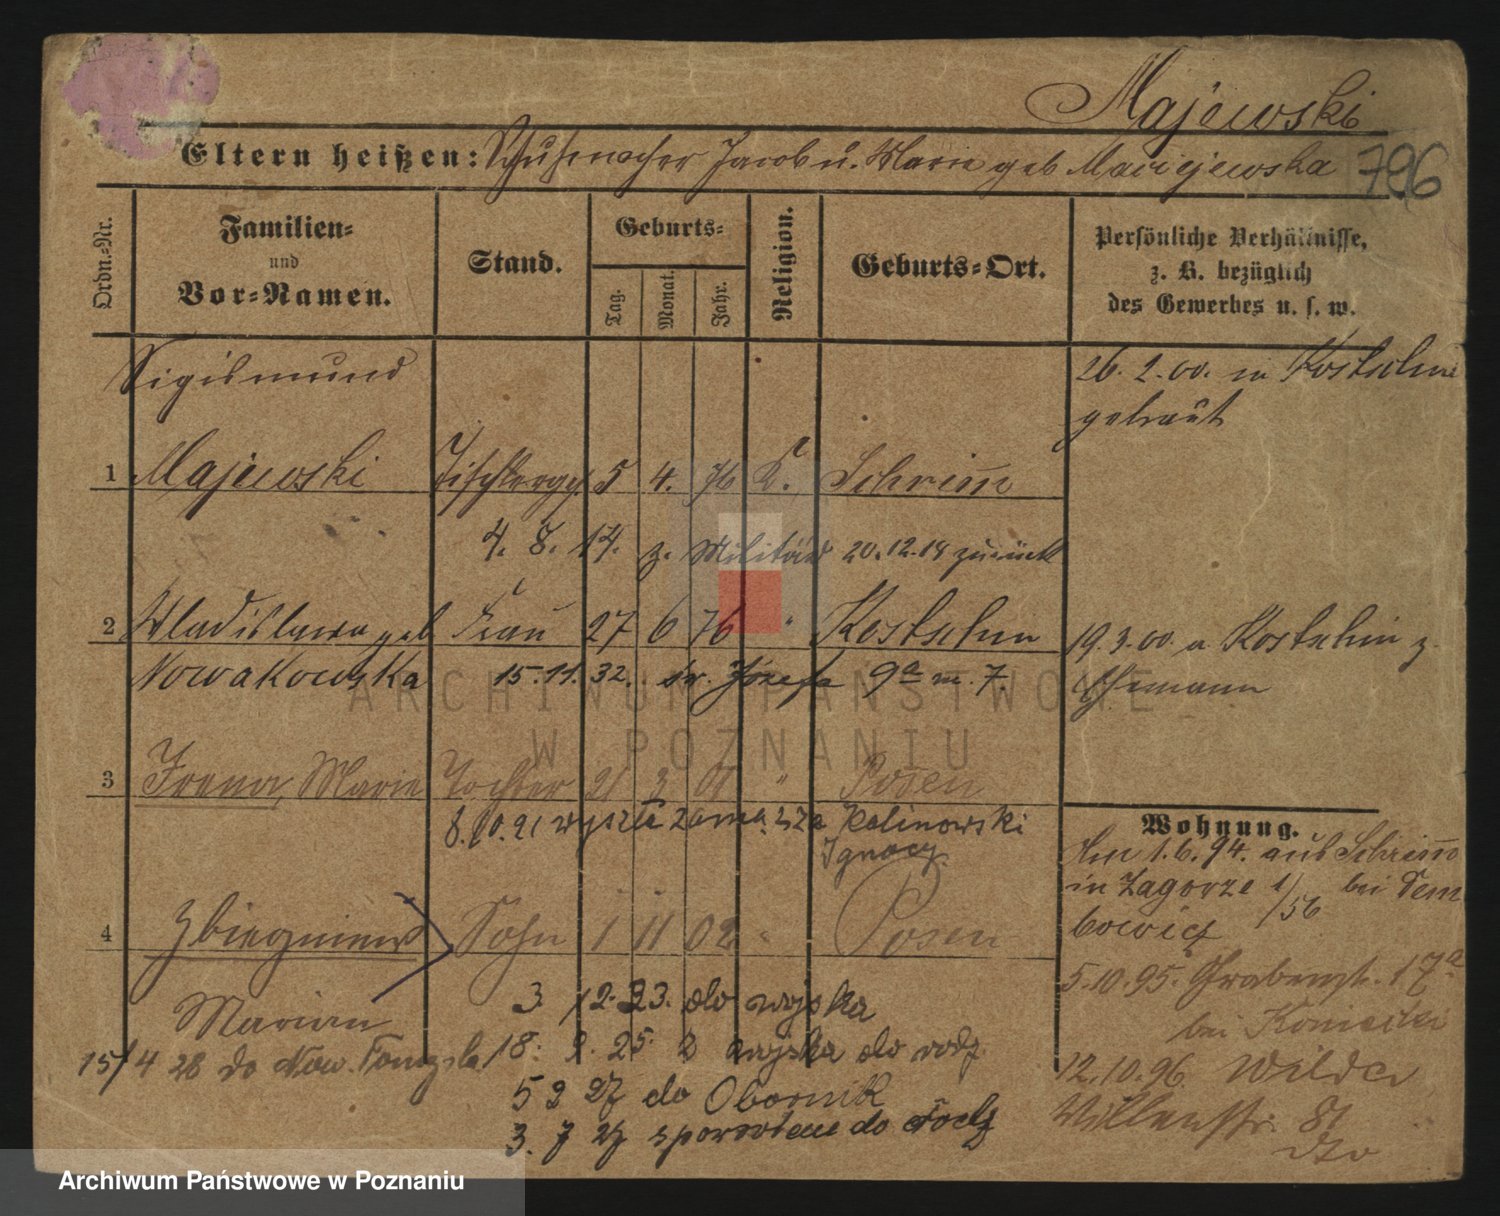 Majewski
Eltern heißen: Schuhmacher Jacob u. Marie geb Maciejewska 796
Ordn.-Nr.
Familien-
und
Vor-Namen.
Stand.
Geburts-
Tag.
Monat.
Jahr.
Religion.
Geburts-Ort.
Persönliche Verhältnisse,
z. B. bezüglich
des Gewerbes u. s. w.
Sigismund
26. 2. 00. in Kostschin
getraut
1 Majewski Tischlerges. 5 4. 76 K. Schrimm
4. 8. 14. z. Militär 20.12.18 zurück
2 Wladislawa geb Frau 27 6 76 " Kostschin
19.3.00. a Kostschin z.
Nowakowska 15.11.32. św. Józefa 9a m. 7.
Ehemann
3 Irena, Marie Tochter 21 3 01 " Posen
8.10.21 wyszła zamąż za Kalinowski
Ignacy.
Wohnung.
1.6.94. aus Schrimm
in Zagorze 1/56 bei Dem
bowicz
4 Zbiegniew Sohn 1 11 02 " Posen
5.10.95. Grabenstr. 17a
bei Konieczki
Marian
3 12. 23. do wojska
15/4 28 do Now. Tomyśla
18. 9. 25. z wojska do rodz
12.10.96 Wilda
5 2 27 do Obornik
3. 7 27 z powrotem do rodz
81
dto
ARCHIWUM PAŃSTWOWE
W POZNANIU
Archiwum Państwowe w Poznaniu